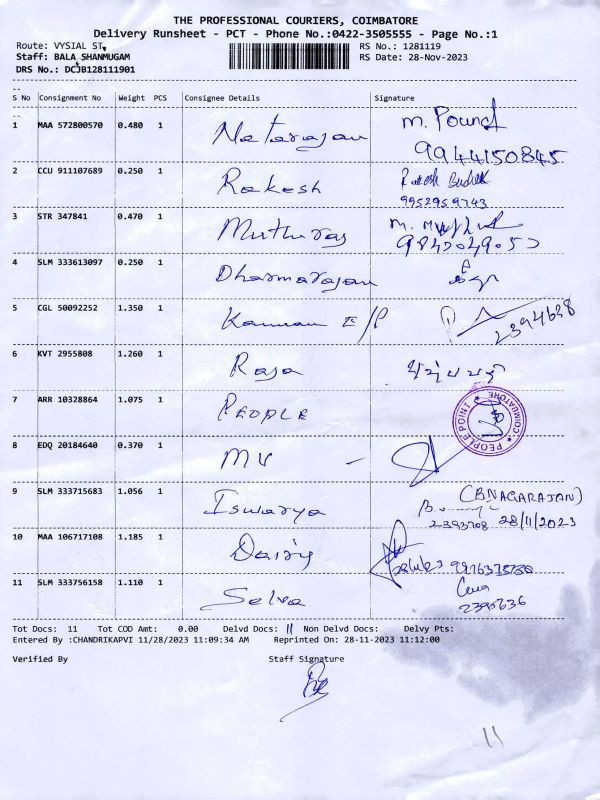 THE PROFESSIONAL COURIERS, COIMBATORE
Delivery Runsheet - PCT - Phone No.:0422-3505555 - Page No.:1
Route: VYSIAL ST, RS No.: 1281119
Staff: BALA SHANMUGAM RS Date: 28-Nov-2023
DRS No.: DCJB128111901
S No Consignment No Weight PCS Consignee Details Signature
1 MAA 572800570 0.480 1 Natarajan m. Pound
9944150845
2 CCU 911107689 0.250 1 Rakesh Rakesh
9952959743
3 STR 347841 0.470 1 Muthuraj m.
4 SLM 333613097 0.250 1 Dharmarajan
5 CGL 50092252 1.350 1 Kannan E/P 2394638
6 KVT 2955808 1.260 1 Raja
7 ARR 10328864 1.075 1 PEOPLE PEOPLE POINT * COIMBATORE *
8 EDQ 20184640 0.370 1 MV -
9 SLM 333715683 1.056 1 Iswarya (BNAGARAJAN)
2393708 28/11/2023
10 MAA 106717108 1.185 1 Dairy
11 SLM 333756158 1.110 1 Selva
2390636
Tot Docs: 11 Tot COD Amt: 0.00 Delvd Docs: 11 Non Delvd Docs: Delvy Pts:
Entered By :CHANDRIKAPVI 11/28/2023 11:09:34 AM Reprinted On: 28-11-2023 11:12:00
Verified By Staff Signature
11